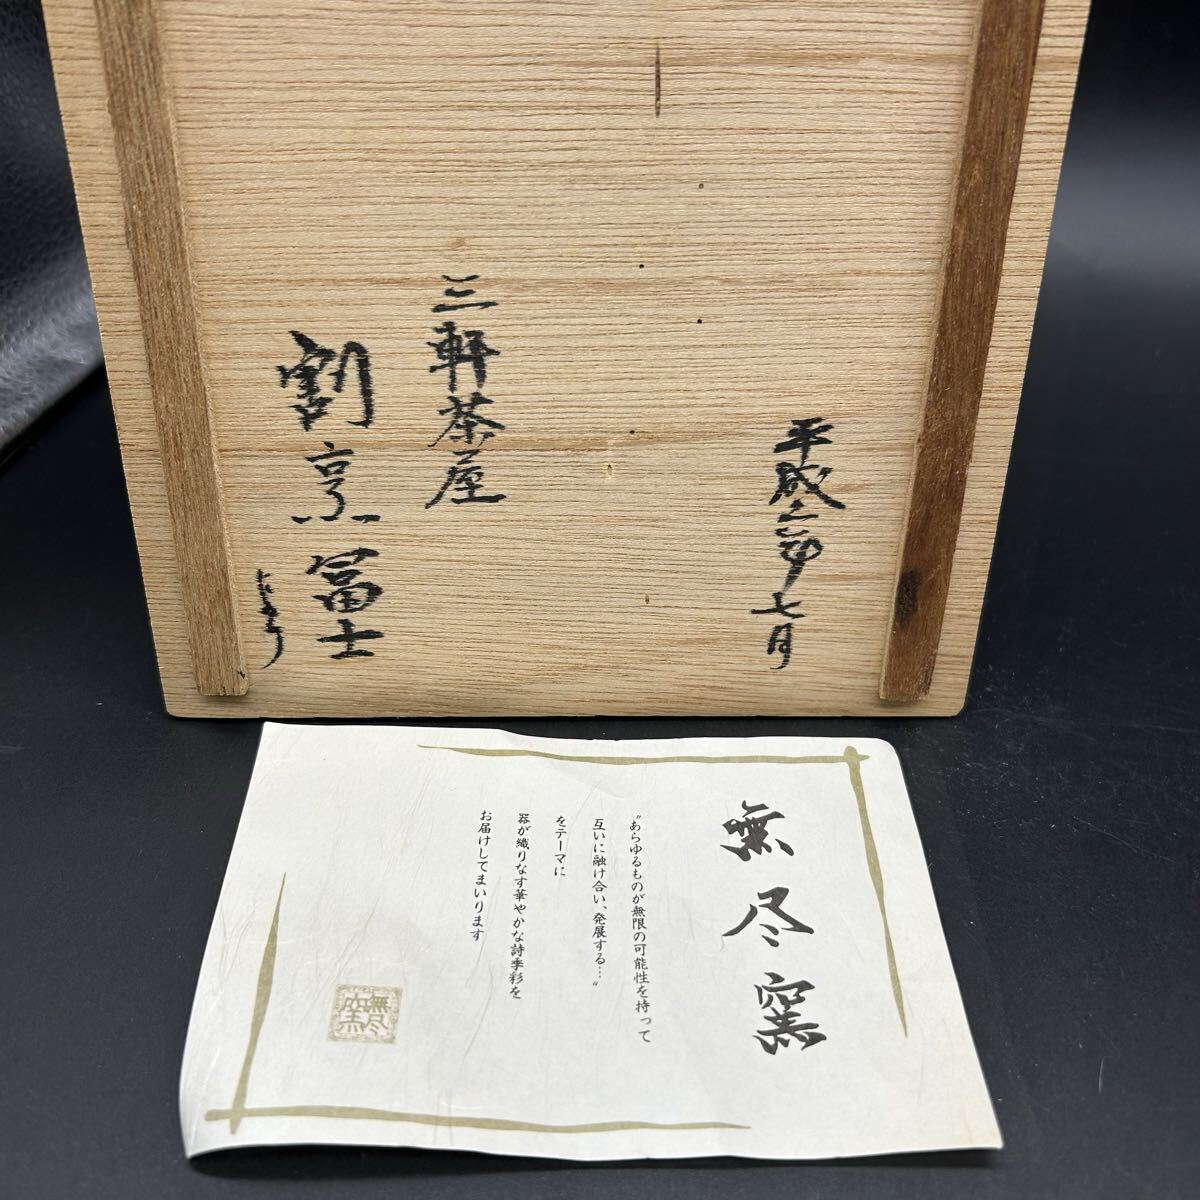 平成二年七月
三軒茶屋
割烹冨士
無尽窯
"あらゆるものが無限の可能性を持って
互いに融け合い、発展する…"
をテーマに
器が織りなす華やかな詩季彩を
お届けしてまいります
無尽窯